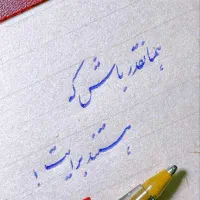 همانقدر باش که
هستند برایت !